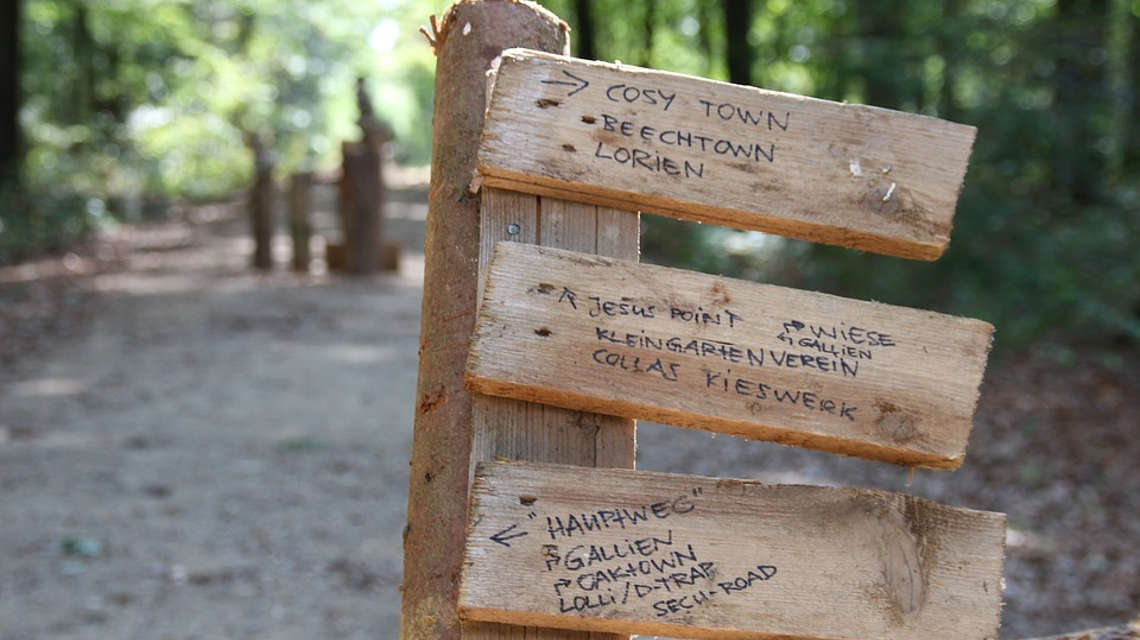 → COSY TOWN
BEECHTOWN
LORIEN
↖ JESUS POINT
↱ WIESE
↰ GALLIEN
KLEINGARTENVEREIN
COLLAS KIESWERK
← "HAUPTWEG"
↱ GALLIEN
↱ OAKTOWN
LOLLI/D-TRAP
SECH-ROAD